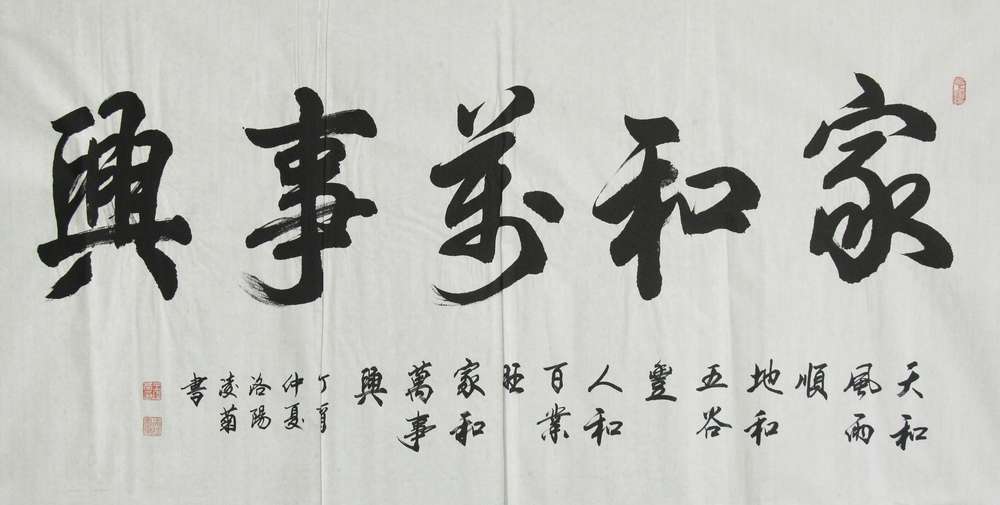 家和萬事興
天和
風雨
順
地和
五谷
豐
人和
百業
旺
家和
萬事
興
丁亥
仲夏
洛陽
凌菊
書